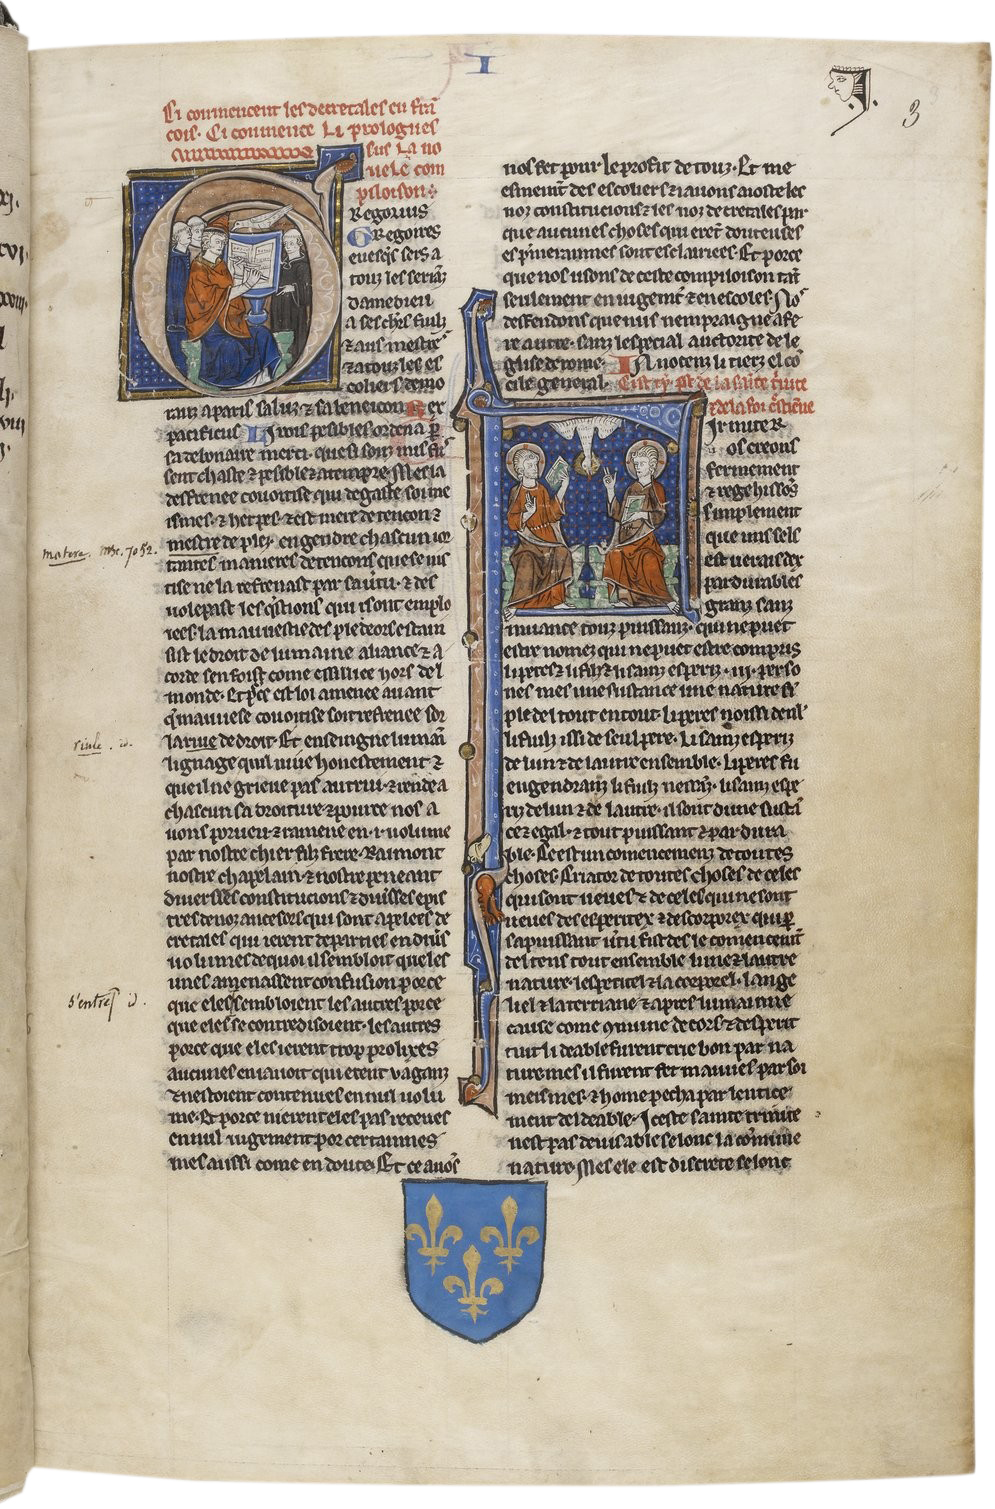 I
3
Ci conmencent les decretales en frā
cois. Ci conmence Li prologues
sus La no
uele com
psloison
Regorius
Gregoires
euesq̄s sers a
touz les serianz
damedieu
a ses chrs fiulz
⁊ aus mestre
⁊ a touz les es
coliers demo
ranz a paris saluz ⁊ sa beneicon. Rex
pacificus Li rois pesibles ordena p̄
sa debonaire merci. que si sougiet
sent chaste ⁊ pesible ⁊ atempre. Mes la
desfrenee couoitise qui degaste soi me
ismes. ⁊ het pes. ⁊ est mere de tencon ⁊
mestre de plez. engendre chascun ior
tantes manieres de tencons que se ius
tise ne la refrenast par sa u̾tu. ⁊ des
uolepast les q̄stions qui i sont emplo
iees. la mauuestie des pledeors estain
sist le droit de lumaine aliance ⁊ a
corde sen foist come essilliee hors del
monde. Et p̄ce est loi amenee auant
q̄ mauuese couoitise soit refrenee soz
la riule de droit. Et enseingne lumain
lignage quil uiue honestement ⁊
que il ne grieue pas autrui. ⁊ rende a
chascun sa droiture. ⁊ pour ce nos a
uons porueu ⁊ ramene en .i. uolume
par nostre chier filz frere Raimont
nostre chapelain. ⁊ nostre peneant
diuersses constitucions ⁊ diuisses epis
tres de noz ancesors qui sont apelees de
cretales qui ierent departies en diu̾s
uolumes de quoi il sembloit que les
unes amenassent confusion por ce
que eles sembloient les autres por ce
que eles se contredisoient. les autres
por ce que eles ierent trop prolixes
aucunes en i auoit qui erent vaganz
⁊ nestoient contenues en nul uolu
me. Et por ce nierent eles pas receues
en nul iugement por certainnes
mes aussi come en doute. Et ce auōs
nos fet pour le profit de touz. Et me
esment des escoliers ⁊ i auons aioste les
noz constitucions ⁊ les noz decretales par
que aucunes choses qui erent douteuses
es p̄mieraines sont esclairiees. Et por ce
que nos uisons de ceste compiloison tant
seulement en iugement ⁊ en escoles Nos
desfendons que nus nempraigne a fe
re autre. sanz lespecial auctorite de le
glise de rome. Innocenz li tierz el con
cile general. Cist ty. est de la sainte trinite
⁊ de la foi crestiene
Firmiter
os creons
fermement
⁊ regehissons
simplement
que uns sels
est uerais dex
pardurables
granz sanz
muance touz puissanz. qui ne puet
estre nomez qui ne puet estre compris
li peres ⁊ li fiulz ⁊ li sainz esperiz. .iii. perso
nes mes une sustance une nature si
ple del tout en tout. li peres noissi de nl̄.
li fiulz issi de seul pere. Li sainz esperiz
de lun ⁊ de lautre ensemble. Li peres fu
engendranz li fiulz nessanz. li sainz espe
riz de lun ⁊ de lautre. il sont dune sustan
ce ⁊ egal. ⁊ tout puissant ⁊ pardura
ble. Ce est un comencemenz de toutes
choses. Criator de toutes choses de celes
qui sont ueues ⁊ de celes qui ne sont
ueues des esperitex ⁊ des corporex qui p̄
sa puissant u̾tu fist des le comencement
del tens tout ensemble lune ⁊ lautre
nature. lesperitel ⁊ la corporel. lange
liel ⁊ la terriane ⁊ apres lumainne
cause come cōmune de cors ⁊ desperit
tuit li deable furent crie bon par na
ture mes il furent fet mauues par soi
meismes. ⁊ home pecha par lentice
ment del deable. Iceste sainte trinite
nest pas deuisable selonc la comune
nature Mes ele est discrete selonc
matere. Mse. 7052.
riule. id.
s'entref id.